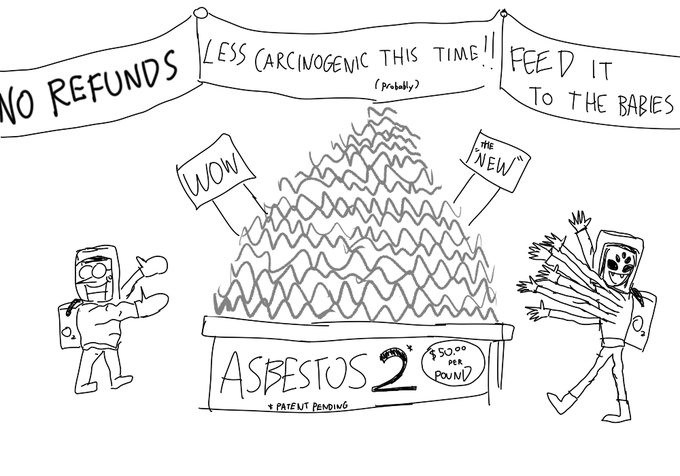 NO REFUNDS
LESS CARCINOGENIC THIS TIME!!
(probably)
FEED IT
TO THE BABIES
WOW
THE
"NEW"
O2
O2
ASBESTOS 2*
$50.00
PER
POUND
* PATENT PENDING